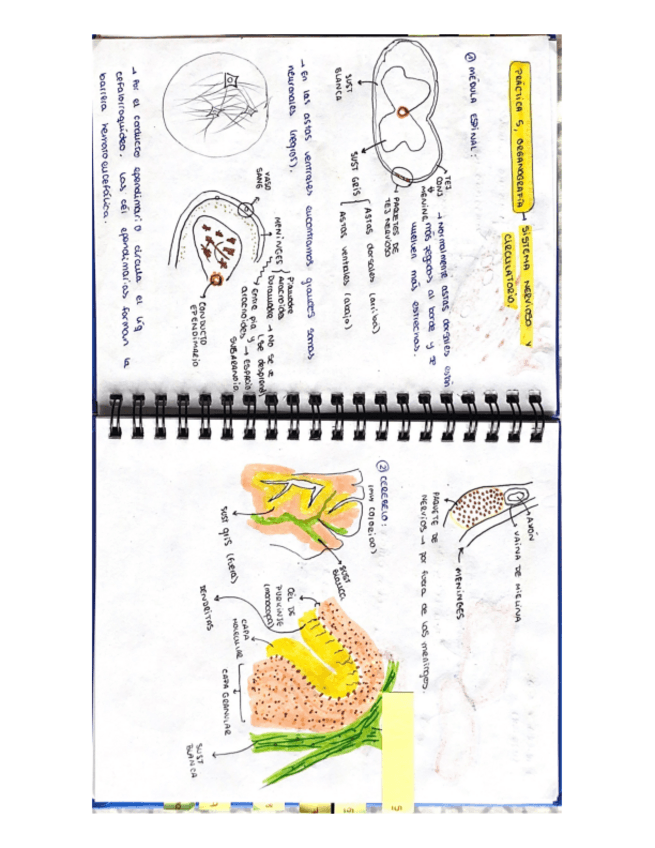 PRÁCTICA 5, ORGANOGRAFÍA → SISTEMA NERVIOSO Y
CIRCULATORIO.
① MÉDULA ESPINAL:
TEJ
CONJ
MENINGE
→ Normalmente astas dorsales están
más pegadas al borde y se
vuelven más estrechas.
PAQUETES DE
TEJ NERVIOSO
SUST
BLANCA
SUST GRIS
Astas dorsales (arriba)
Astas ventrales (abajo)
→ En las astas ventrales encontramos grandes somas
neuronales (negros).
VASO
SANG
MENINGES
Piamadre
Aracnoides
Duramadre → No se ve
(se desprende)
Entre pia y
aracnoides → ESPACIO
SUBARACNOI
CONDUCTO
EPENDIMARIO
→ Por el conducto ependimario circula el líq
cefalorraquídeo. Las cél ependimarias forman la
barrera hematoencefálica.
AXÓN
VAINA DE MIELINA
MENINGES
PAQUETE DE
NERVIOS → por fuera de las meninges.
② CEREBELO:
(MUY COLORIDO)
SUST
BLANCA
SUST GRIS (fuera)
CÉL DE
PURKINJE
(monocapa)
DENDRITAS
CAPA
MOLECULAR
CAPA GRANULAR
SUST
BLANCA